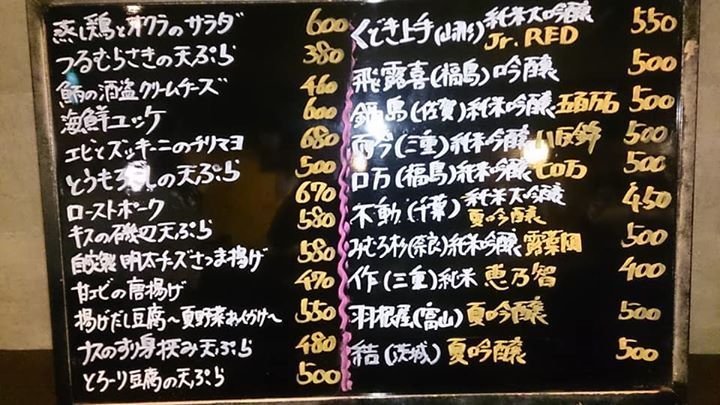 蒸し鶏とオクラのサラダ 600
つるむらさきの天ぷら 380
鮪の酒盗クリームチーズ 460
海鮮ユッケ 600
エビとズッキーニのチリマヨ 680
とうもろこしの天ぷら 500
ローストポーク 670
キスの磯辺天ぷら 580
自家製 明太チーズさつま揚げ 580
甘エビの唐揚げ 470
揚げだし豆腐〜夏野菜あんかけ〜 550
ナスのすり身挟み天ぷら 480
とろーり豆腐の天ぷら 500
くどき上手(山形)純米大吟醸 Jr.RED 550
飛露喜(福島)吟醸 500
鍋島(佐賀)純米吟醸 五百万石 500
而今(三重)純米吟醸 八反錦 500
ロ万(福島)純米吟醸 七ロ万 500
不動(千葉)純米大吟醸 夏吟醸 450
みむろ杉(奈良)純米吟醸 露葉風 500
作(三重)純米 恵乃智 400
羽根屋(富山)夏吟醸 500
結(茨城)夏吟醸 500